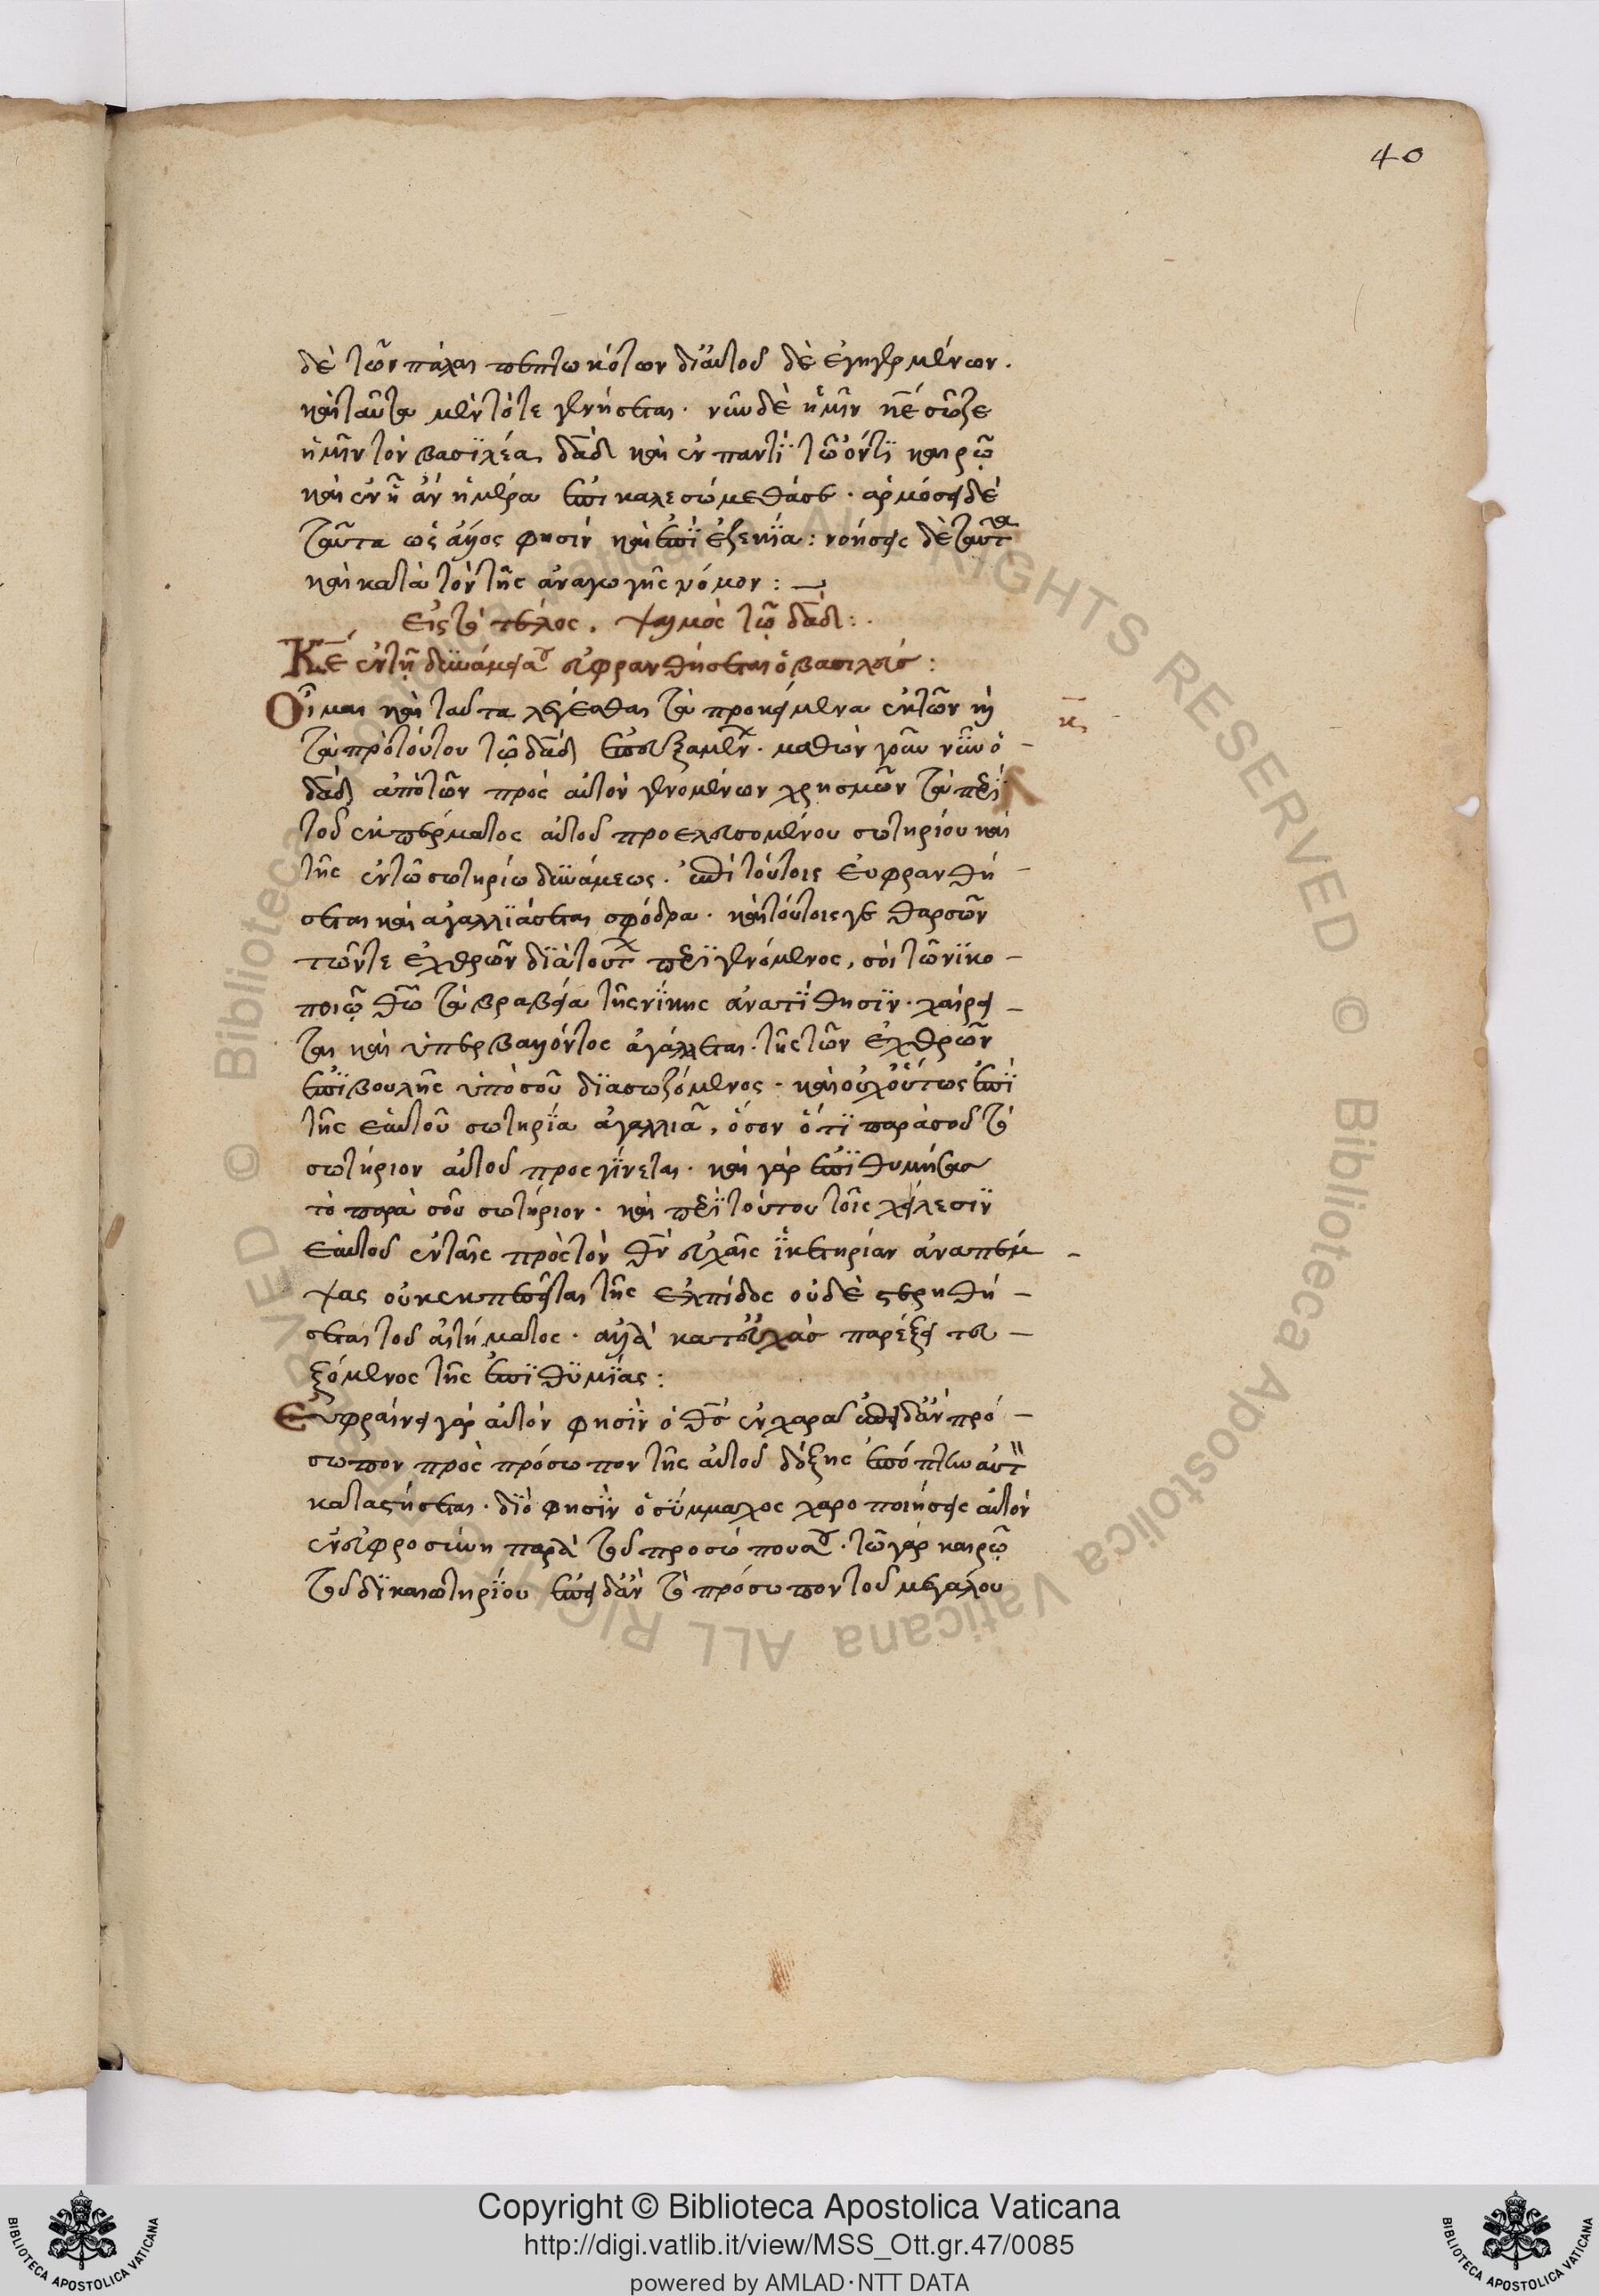 40
δὲ τῶν πάλαι πεπτωκότων δι' αὐτοῦ δὲ ἐγηγερμένων.
καὶ ταῦτα μὲν τότε γενήσεται. νῦν δὲ ἡμῖν κε̄ σῶζε
ἡμῖν τὸν βασιλέα δᾱδ καὶ ἐν παντὶ τῶ ὄντι καιρῶ
καὶ ἐν ῇ ἂν ἡμέρα ἐπικαλεσώμεθά σε. ἁρμόσει δὲ
ταῦτα ὡς ἄλλος φησὶν καὶ ἐπὶ ἐζεκία: νοήσεις δὲ ταῦτα
καὶ κατὰ τὸν τῆς ἀναγωγῆς νόμον:—
Εἰς τὸ τέλος. ψαλμὸς τῶ δᾱδ:.
Κε̄ ἐν τῇ δυνάμει σου εὐφρανθήσεται ὁ βασιλεύς:
Οἶμαι καὶ ταῦτα λέγεσθαι τὰ προκείμενα ἐκ τῶν κατὰ
κ̄
τὰ πρὸ τούτου τῶ δᾱδ ἐπευξαμένων. μαθὼν γοῦν νῦν ὁ
δᾱδ ἀπὸ τῶν πρὸς αὐτὸν γενομένων χρησμῶν τὰ περὶ
τοῦ ἐκ σπέρματος αὐτοῦ προελευσομένου σωτηρίου καὶ
τῆς ἐν τῶ σωτηρίω δυνάμεως. ἐπὶ τούτοις εὐφρανθή-
σεται καὶ ἀγαλλιάσεται σφόδρα. καὶ τούτοις γε θαρσῶν
τῶν τε ἐχθρῶν διὰ τοῦτο περιγενόμενος, σοὶ τῶ νικο-
ποιῶ θῶ τὰ βραβεῖα τῆς νίκης ἀνατίθησιν. χαίρε-
ται καὶ ὑπερβαλλόντως ἀγάλλεται. τῆς τῶν ἐχθρῶν
ἐπιβουλῆς ὑπὸ σοῦ διασωζόμενος. καὶ οὐχ οὕτως ἐπὶ
τῆς ἑαυτοῦ σωτηρία ἀγαλλιᾶ, ὅσον ὅτι παρὰ σοῦ τὸ
σωτήριον αὐτοῦ προσγίνεται. καὶ γὰρ ἐπιθυμήσας
τὸ παρὰ σοῦ σωτήριον. καὶ περὶ τούτου τοῖς χείλεσιν
ἑαυτοῦ ἐν ταῖς πρὸς τὸν θν̄ εὐχαῖς ἱκετηρίαν ἀναπέμ-
ψας οὐκ ἐκπεσεῖται τῆς ἐλπίδος οὐδὲ στερηθή-
σεται τοῦ αἰτήματος. ἀλλὰ κατ' εὐχὰς παρέξει τευ-
ξόμενος τῆς ἐπιθυμίας:
Εὐφραίνει γὰρ αὐτόν φησὶν ὁ θς̄ ἐν χαρᾶ ἐπειδὰν πρό-
σωπον πρὸς πρόσωπον τῆς αὐτοῦ δόξης ἐπόπτην αὐτὸν
καταστήσεται. διό φησὶν ὁ σύμμαχος χαροποιήσεις αὐτὸν
ἐν εὐφροσύνη παρὰ τοῦ προσώπου σου. τῶ γὰρ καιρῶ
τοῦ δικαιωτηρίου ἐπειδὰν τὸ πρόσωπον τοῦ μεγάλου
Copyright © Biblioteca Apostolica Vaticana
http://digi.vatlib.it/view/MSS_Ott.gr.47/0085
powered by AMLAD·NTT DATA